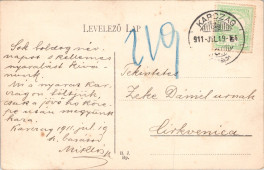 LEVELEZŐ LAP
KARCZAG
911 JUL 19
219
Sok boldog név-
napot s kellemes
nyaralást kivá-
nunk.
Mi a nyarat Kar-
czagon töltjük,
csak a jövő hó köze-
pe után megyünk
haza.
Karczag 1911. júl. 19
Miklós
Tekintetes
Zeke Dániel urnak
Cirkvenica